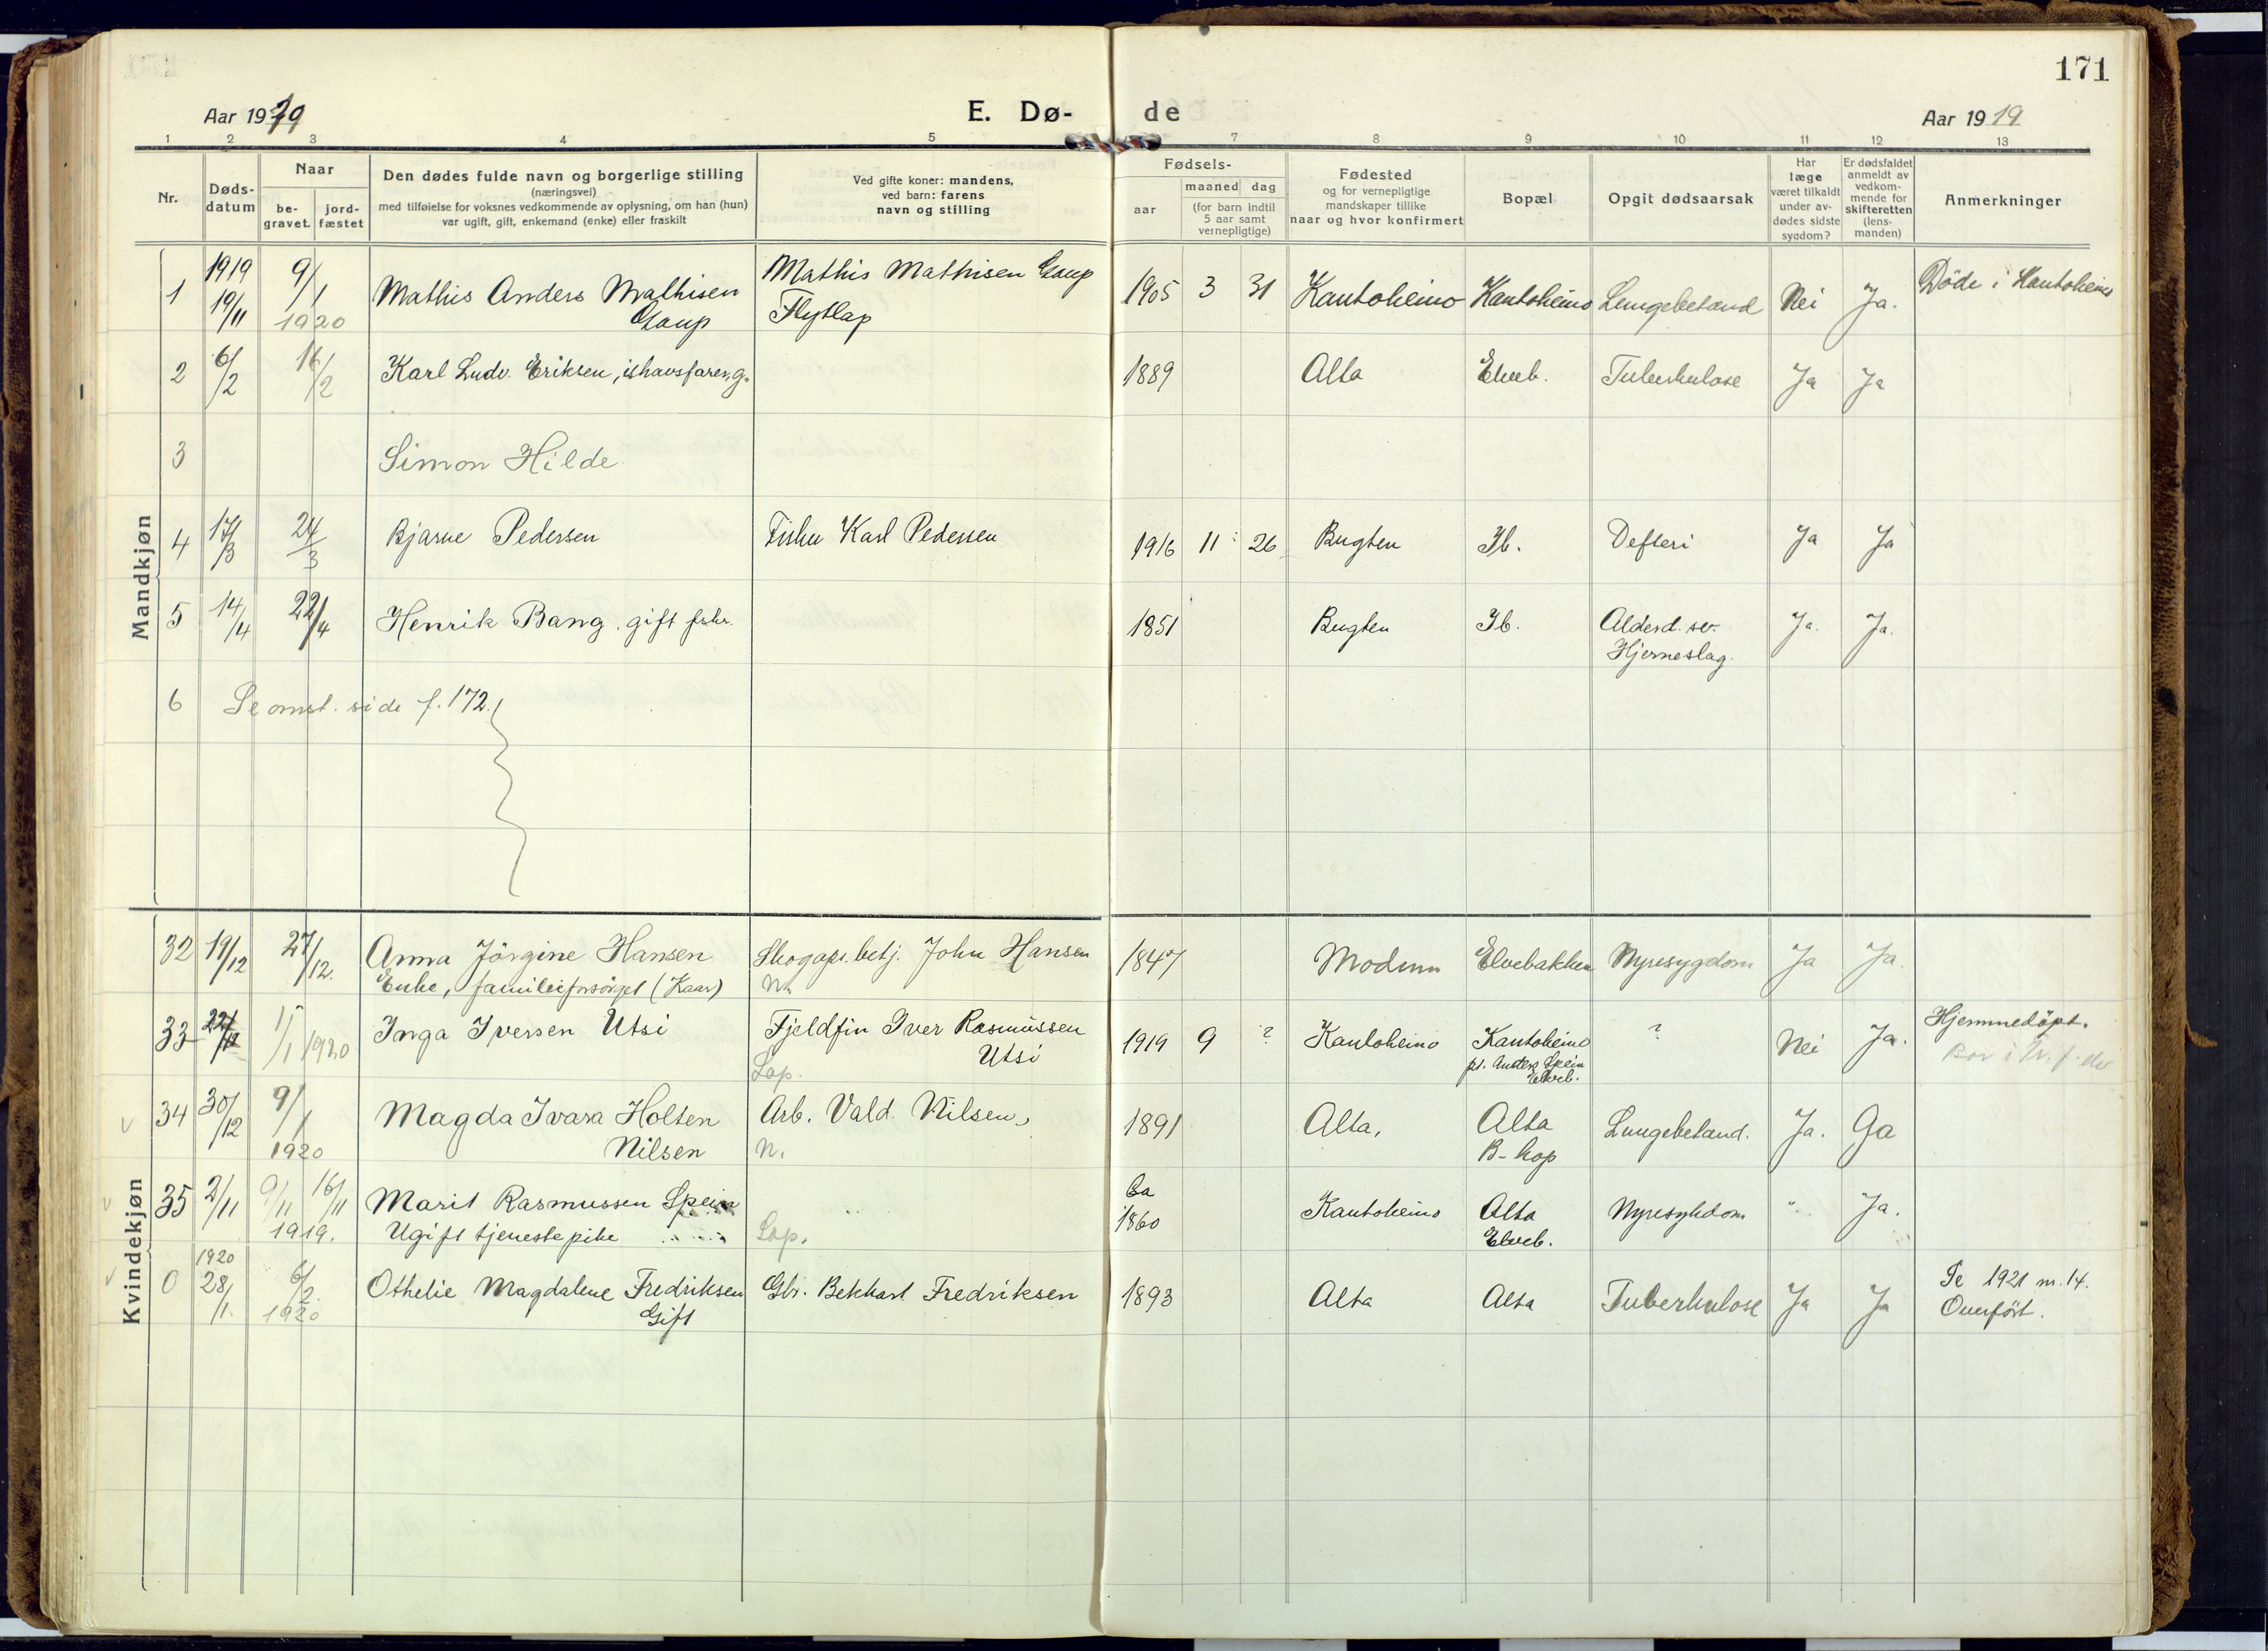 171
Aar 1919
E. Dø-
de
Aar 1919
1 2 3 4 5 7 8 9 10 11 12 13
Nr.
Døds-
datum
Naar
be-
gravet.
jord-
fæstet
Den dødes fulde navn og borgerlige stilling
(næringsvei)
med tilføielse for voksnes vedkommende av oplysning, om han (hun)
var ugift, gift, enkemand (enke) eller fraskilt
Ved gifte koner: mandens,
ved barn: farens
navn og stilling
Fødsels-
aar
maaned dag
(for barn indtil
5 aar samt
vernepligtige)
Fødested
og for vernepligtige
mandskaper tillike
naar og hvor konfirmert
Bopæl
Opgit dødsaarsak
Har
læge
været tilkaldt
under av-
dødes sidste
sygdom?
Er dødsfaldet
anmeldt av
vedkom-
mende for
skifteretten
(lens-
manden)
Anmerkninger
Mandkjøn
1 1919 19/11 9/1 1920 Mathis Anders Mathisen Gaup Mathis Mathisen Gaup Flytlap 1905 3 31 Kautokeino Kautokeino Lungebetænd Nei Ja. Döde i Kautokeino
2 6/2 16/2 Karl Ludv. Eriksen, ishavsfarer, g. 1889 Alta Elveb. Tuberkulose Ja Ja
3 Simon Hilde
4 17/3 24/3 Bjarne Pedersen Fisker Karl Pedersen 1916 11 26 Bugten Ib. Defteri Ja Ja
5 14/4 22/4 Henrik Bang. gift fisker. 1851 Bugten Ib. Alderd. sv. Hjerneslag. Ja. Ja.
6 Se omst. side f. 172.
Kvindekjøn
32 19/12 27/12. Anna Jörgine Hansen Enke, familieforsörget (Kaar) Skogops.betj. John Hansen N. 1847 Modum Elvebakken Nyresygdom Ja Ja
33 22/12 15/1 1920 Inga Iversen Utsi Fjeldfin Iver Rasmussen Utsi Lap. 1919 9 ? Kautokeino Kautokeino pt. Anders Spein Elveb. ? Nei Ja. Hjemmedöpt. Bor i
34 30/12 9/1 1920 Magda Ivara Holten Nilsen Arb. Vald. Nilsen, N. 1891 Alta, Alta B-hop Lungebetænd. Ja. Ja
35 2/11 9/11 16/11 1919. Marit Rasmussen Spein Ugift tjenestepike Lap. Ca 1860 Kautokeino Alta Elveb. Nyresykdom " Ja.
0 1920 28/1. 6/2. 1920 Othelie Magdalene Fredriksen Gift Gbr. Bekhart Fredriksen 1893 Alta Alta Tuberkulose Ja Ja Se 1921 nr. 14. Overfört.